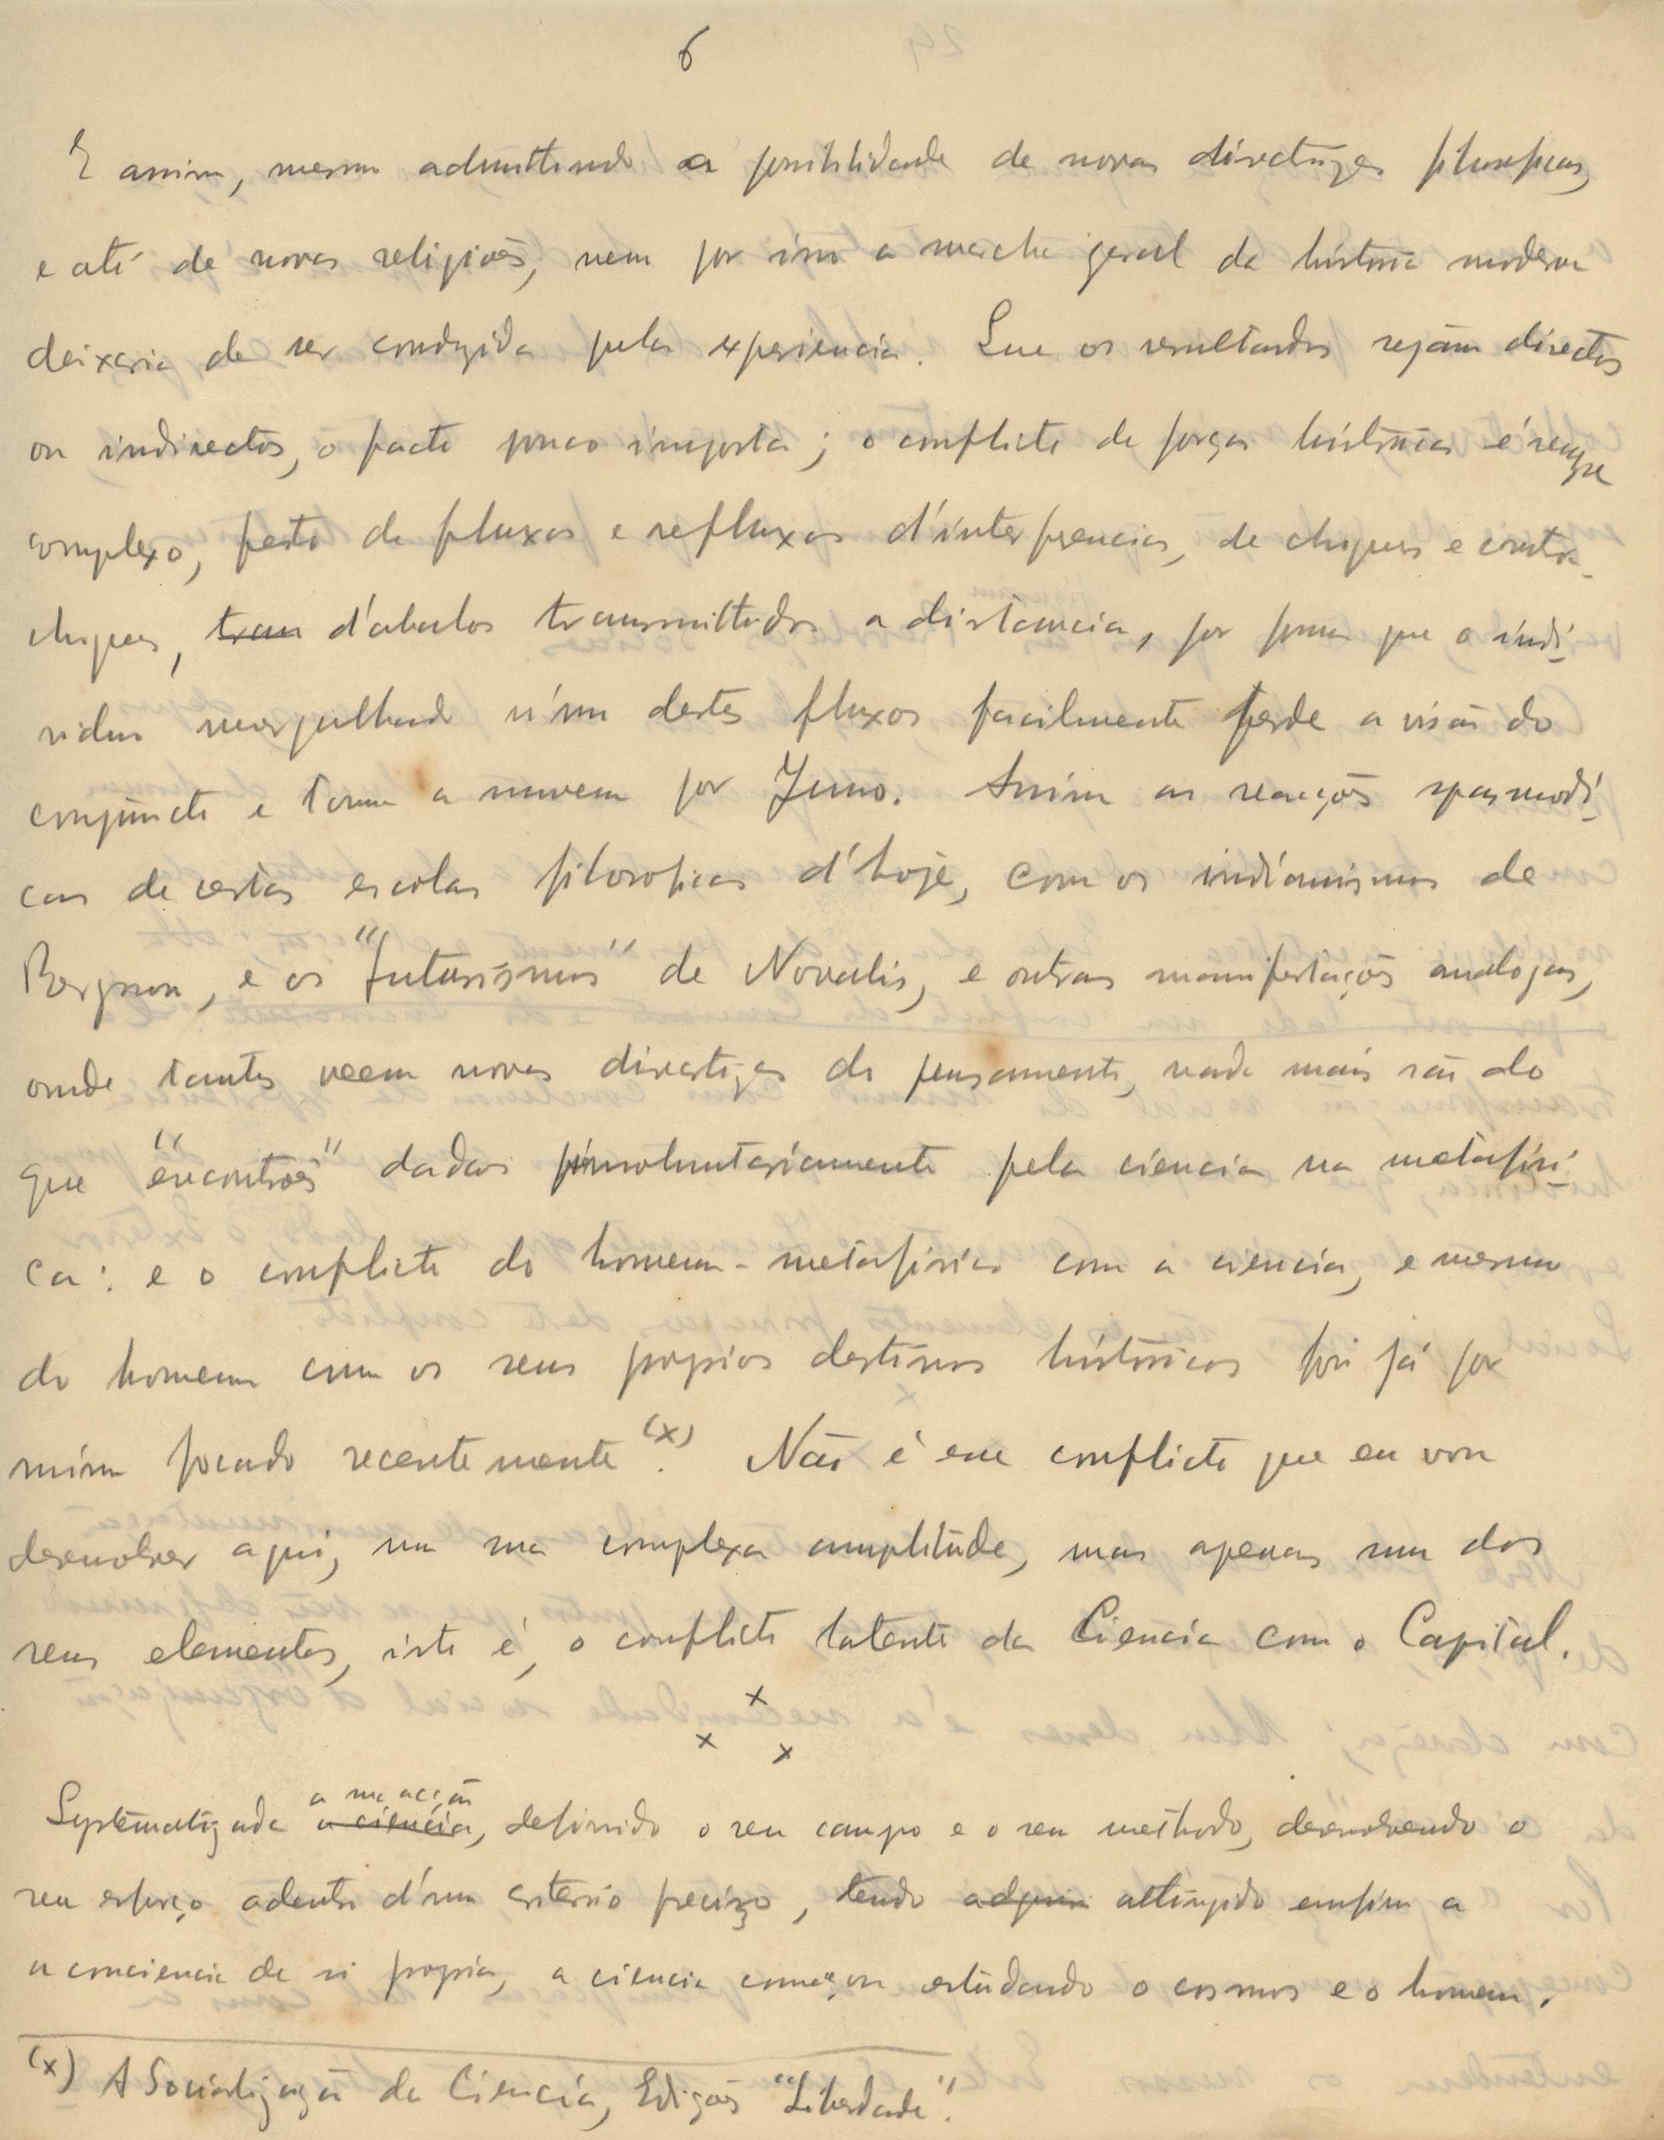 6
E assim, mesmo admittindo a possibilidade de novas directrizes filosoficas,
e até de novas religiões, nem por isso a marcha geral da historia moderna
deixaria de ser conduzida pela experiencia. Que os resultados sejam directos
ou indirectos, o facto pouco importa; o conflicto de forças historicas é sempre
complexo, feito de fluxos e refluxos d'interferencias, de choques e contra-
choques, tran d'abalos transmittidos a distancia, por forma que o indi-
viduo mergulhado n'um destes fluxos facilmente perde a visão do
conjuncto e toma a nuvem por Juno. Assim as reacções spasmodi-
cas de certas escolas filosoficas d'hoje, com os indianismos de
Bergson, e os "futurismos" de Novalis, e outras manifestações analogas,
onde tantos veem novas directrizes do pensamento, nada mais são do
que "encontrões" dados involuntariamente pela ciencia na metafisi-
ca: e o conflicto do homem-metafisico com a ciencia, e mesmo
do homem com os seus proprios destinos historicos foi já por
mim focado recentemente (x). Não é esse conflicto que eu vou
desenvolver aqui, na sua complexa amplitude, mas apenas um dos
seus elementos, isto é, o conflicto latente da Ciencia com o Capital.
x
x x
a sua acção
Systematizada a ciencia, definido o seu campo e o seu methodo, desenvolvendo o
seu esforço adentro d'um criterio precizo, tendo adquiri attingido emfim a
a consciencia de si propria, a ciencia começou estudando o cosmos e o homem.
(x) A Socialização da Ciencia, Edições "Liberdade".